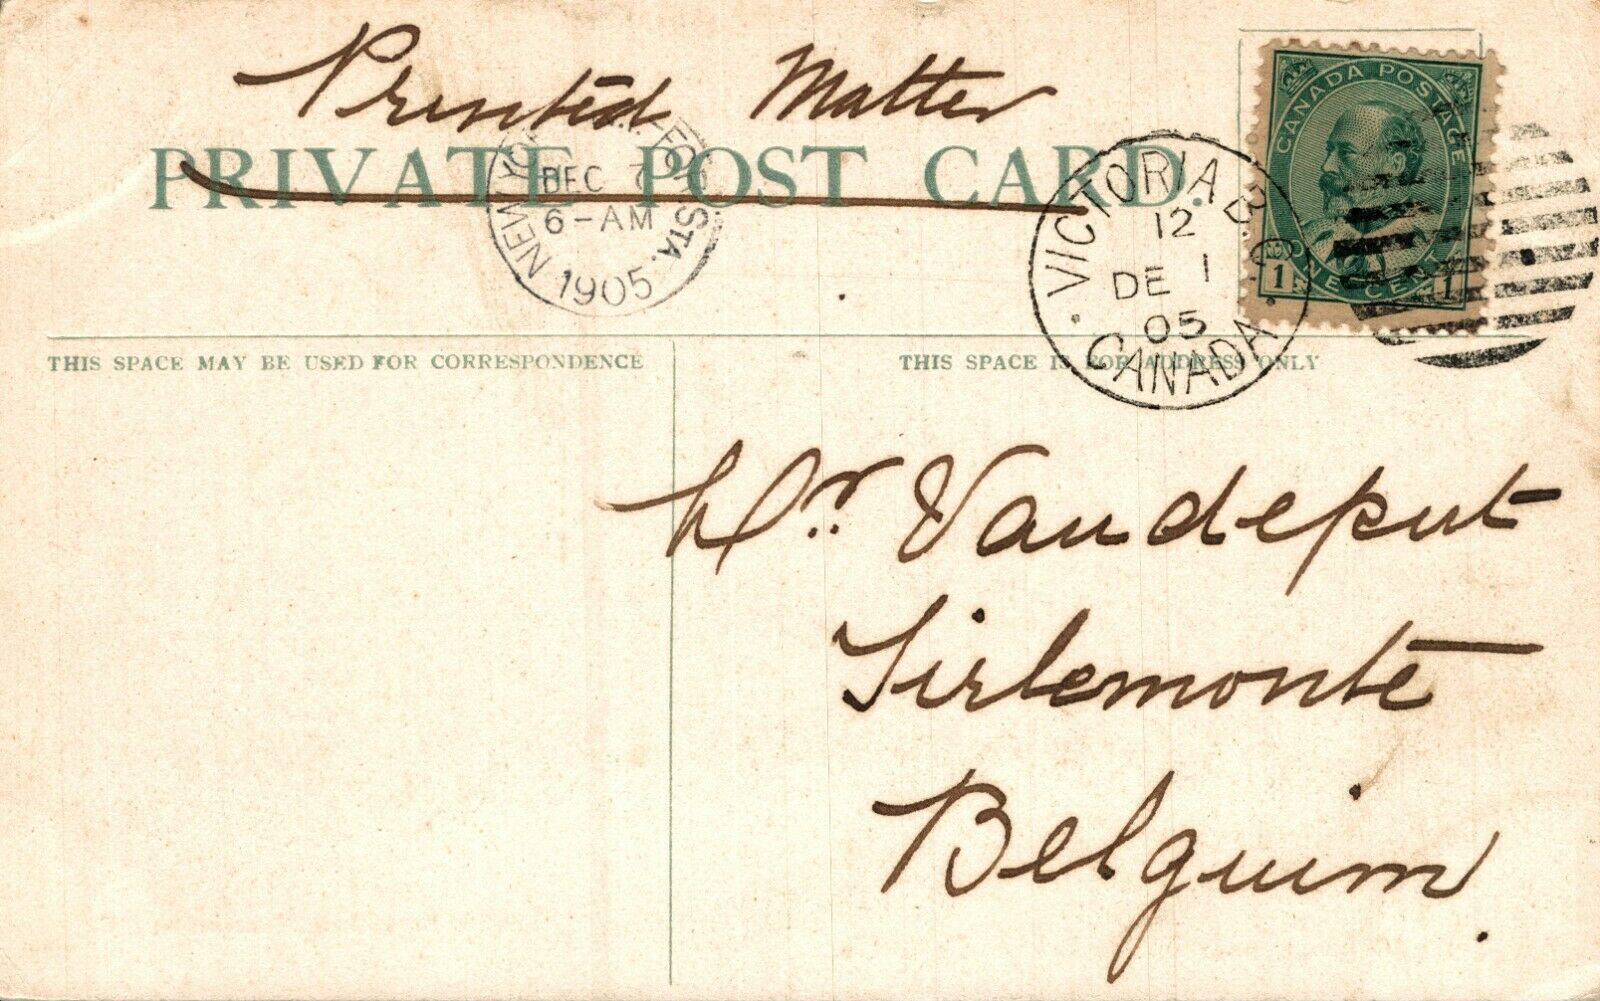 Printed Matter
PRIVATE POST CARD.
NEW YORK, N.Y. FOR. STA.
DEC 7
6-AM
1905
VICTORIA B.C.
12
DE 1
05
CANADA
CANADA POSTAGE
1 ONE CENT 1
THIS SPACE MAY BE USED FOR CORRESPONDENCE
THIS SPACE IS FOR ADDRESS ONLY
Mr Vandeput
Tirlemonte
Belguim.